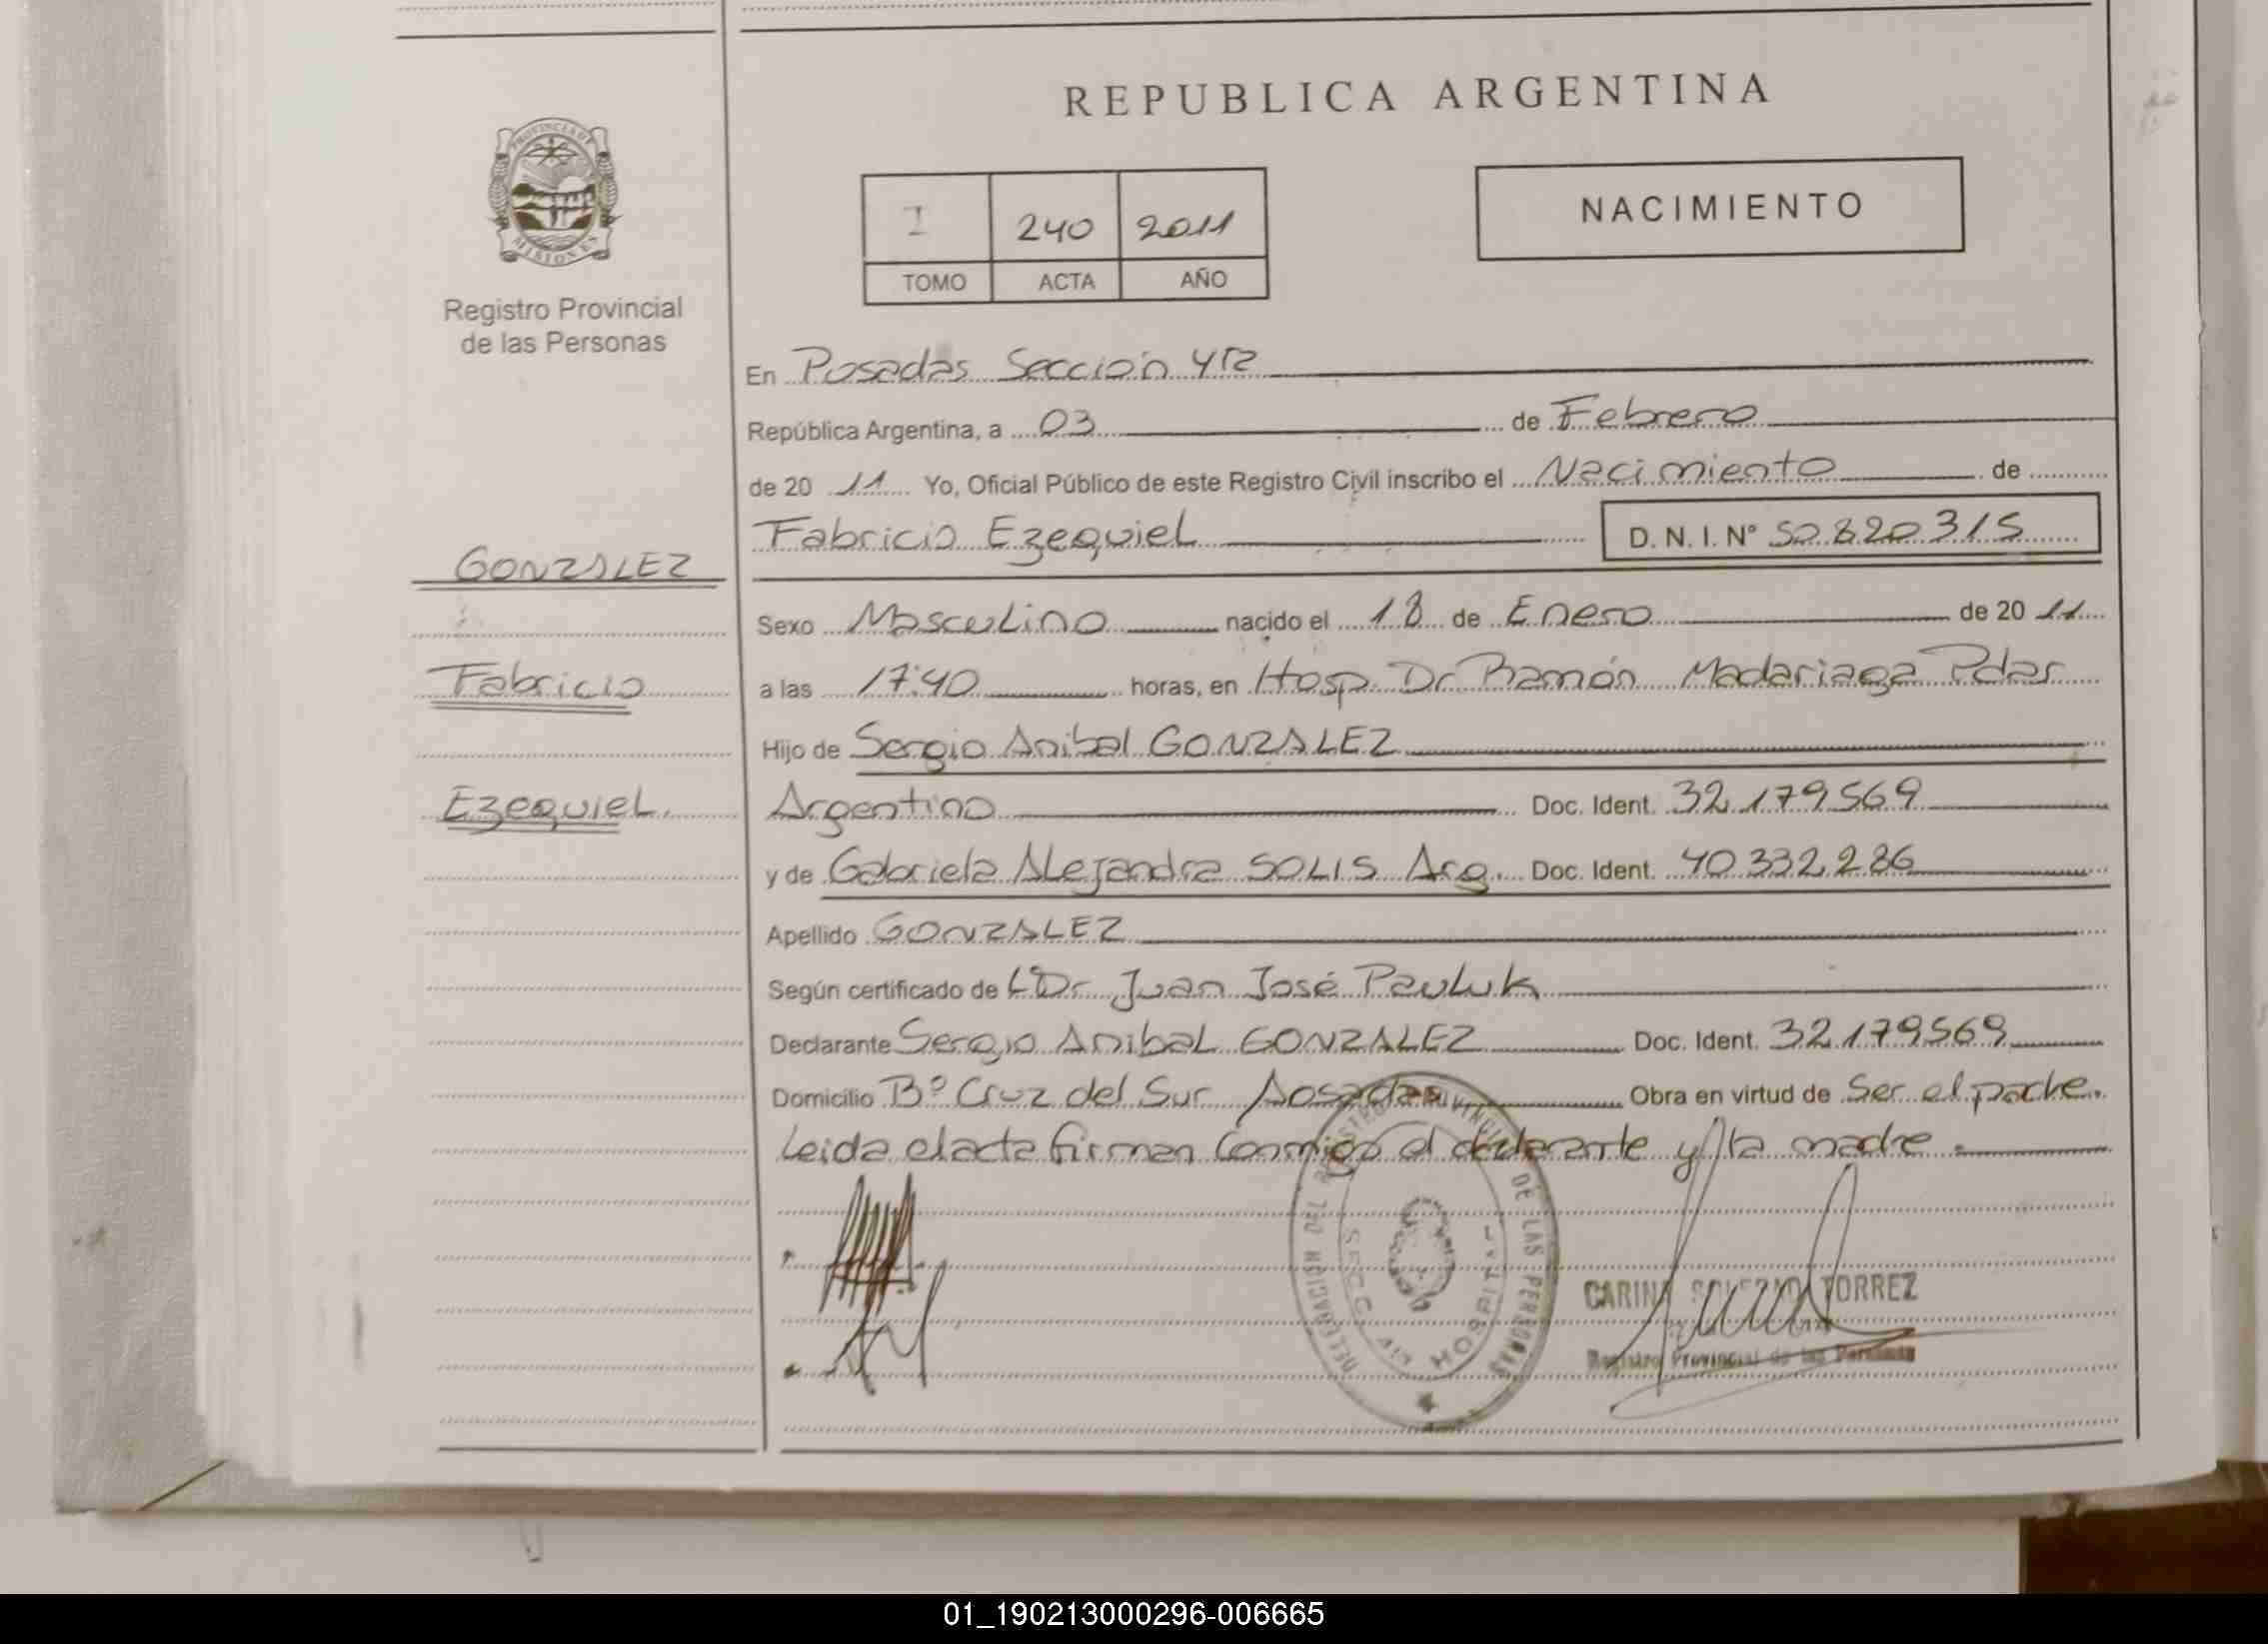 REPUBLICA ARGENTINA
PROVINCIA DE
MISIONES
Registro Provincial
de las Personas
I 240 2011
TOMO ACTA AÑO
NACIMIENTO
En Posadas Sección 4ta
República Argentina, a 03 de Febrero
de 20 11 Yo, Oficial Público de este Registro Civil inscribo el Nacimiento de
Fabricio Ezequiel D. N. I. Nº 50.820.315
GONZALEZ
Fabricio
Ezequiel.
Sexo Masculino nacido el 18 de Enero de 20 11
a las 17:40 horas, en Hosp. Dr Ramón Madariaga Pdas
Hijo de Sergio Anibal GONZALEZ
Argentino Doc. Ident. 32.179.569
y de Gabriela Alejandra SOLIS Arg. Doc. Ident. 40.332.286
Apellido GONZALEZ
Según certificado de Dr. Juan José Pauluk
Declarante Sergio Anibal GONZALEZ Doc. Ident. 32.179.569
Domicilio Bº Cruz del Sur Posadas Obra en virtud de Ser el padre.
Leida el acta firman conmigo el declarante y la madre
DELEGACION DEL REGISTRO PROVINCIAL DE LAS PERSONAS
SECC 4ta HOSPITAL
CARINA SOLEDAD TORREZ
Registro Provincial de las Personas
01_190213000296-006665